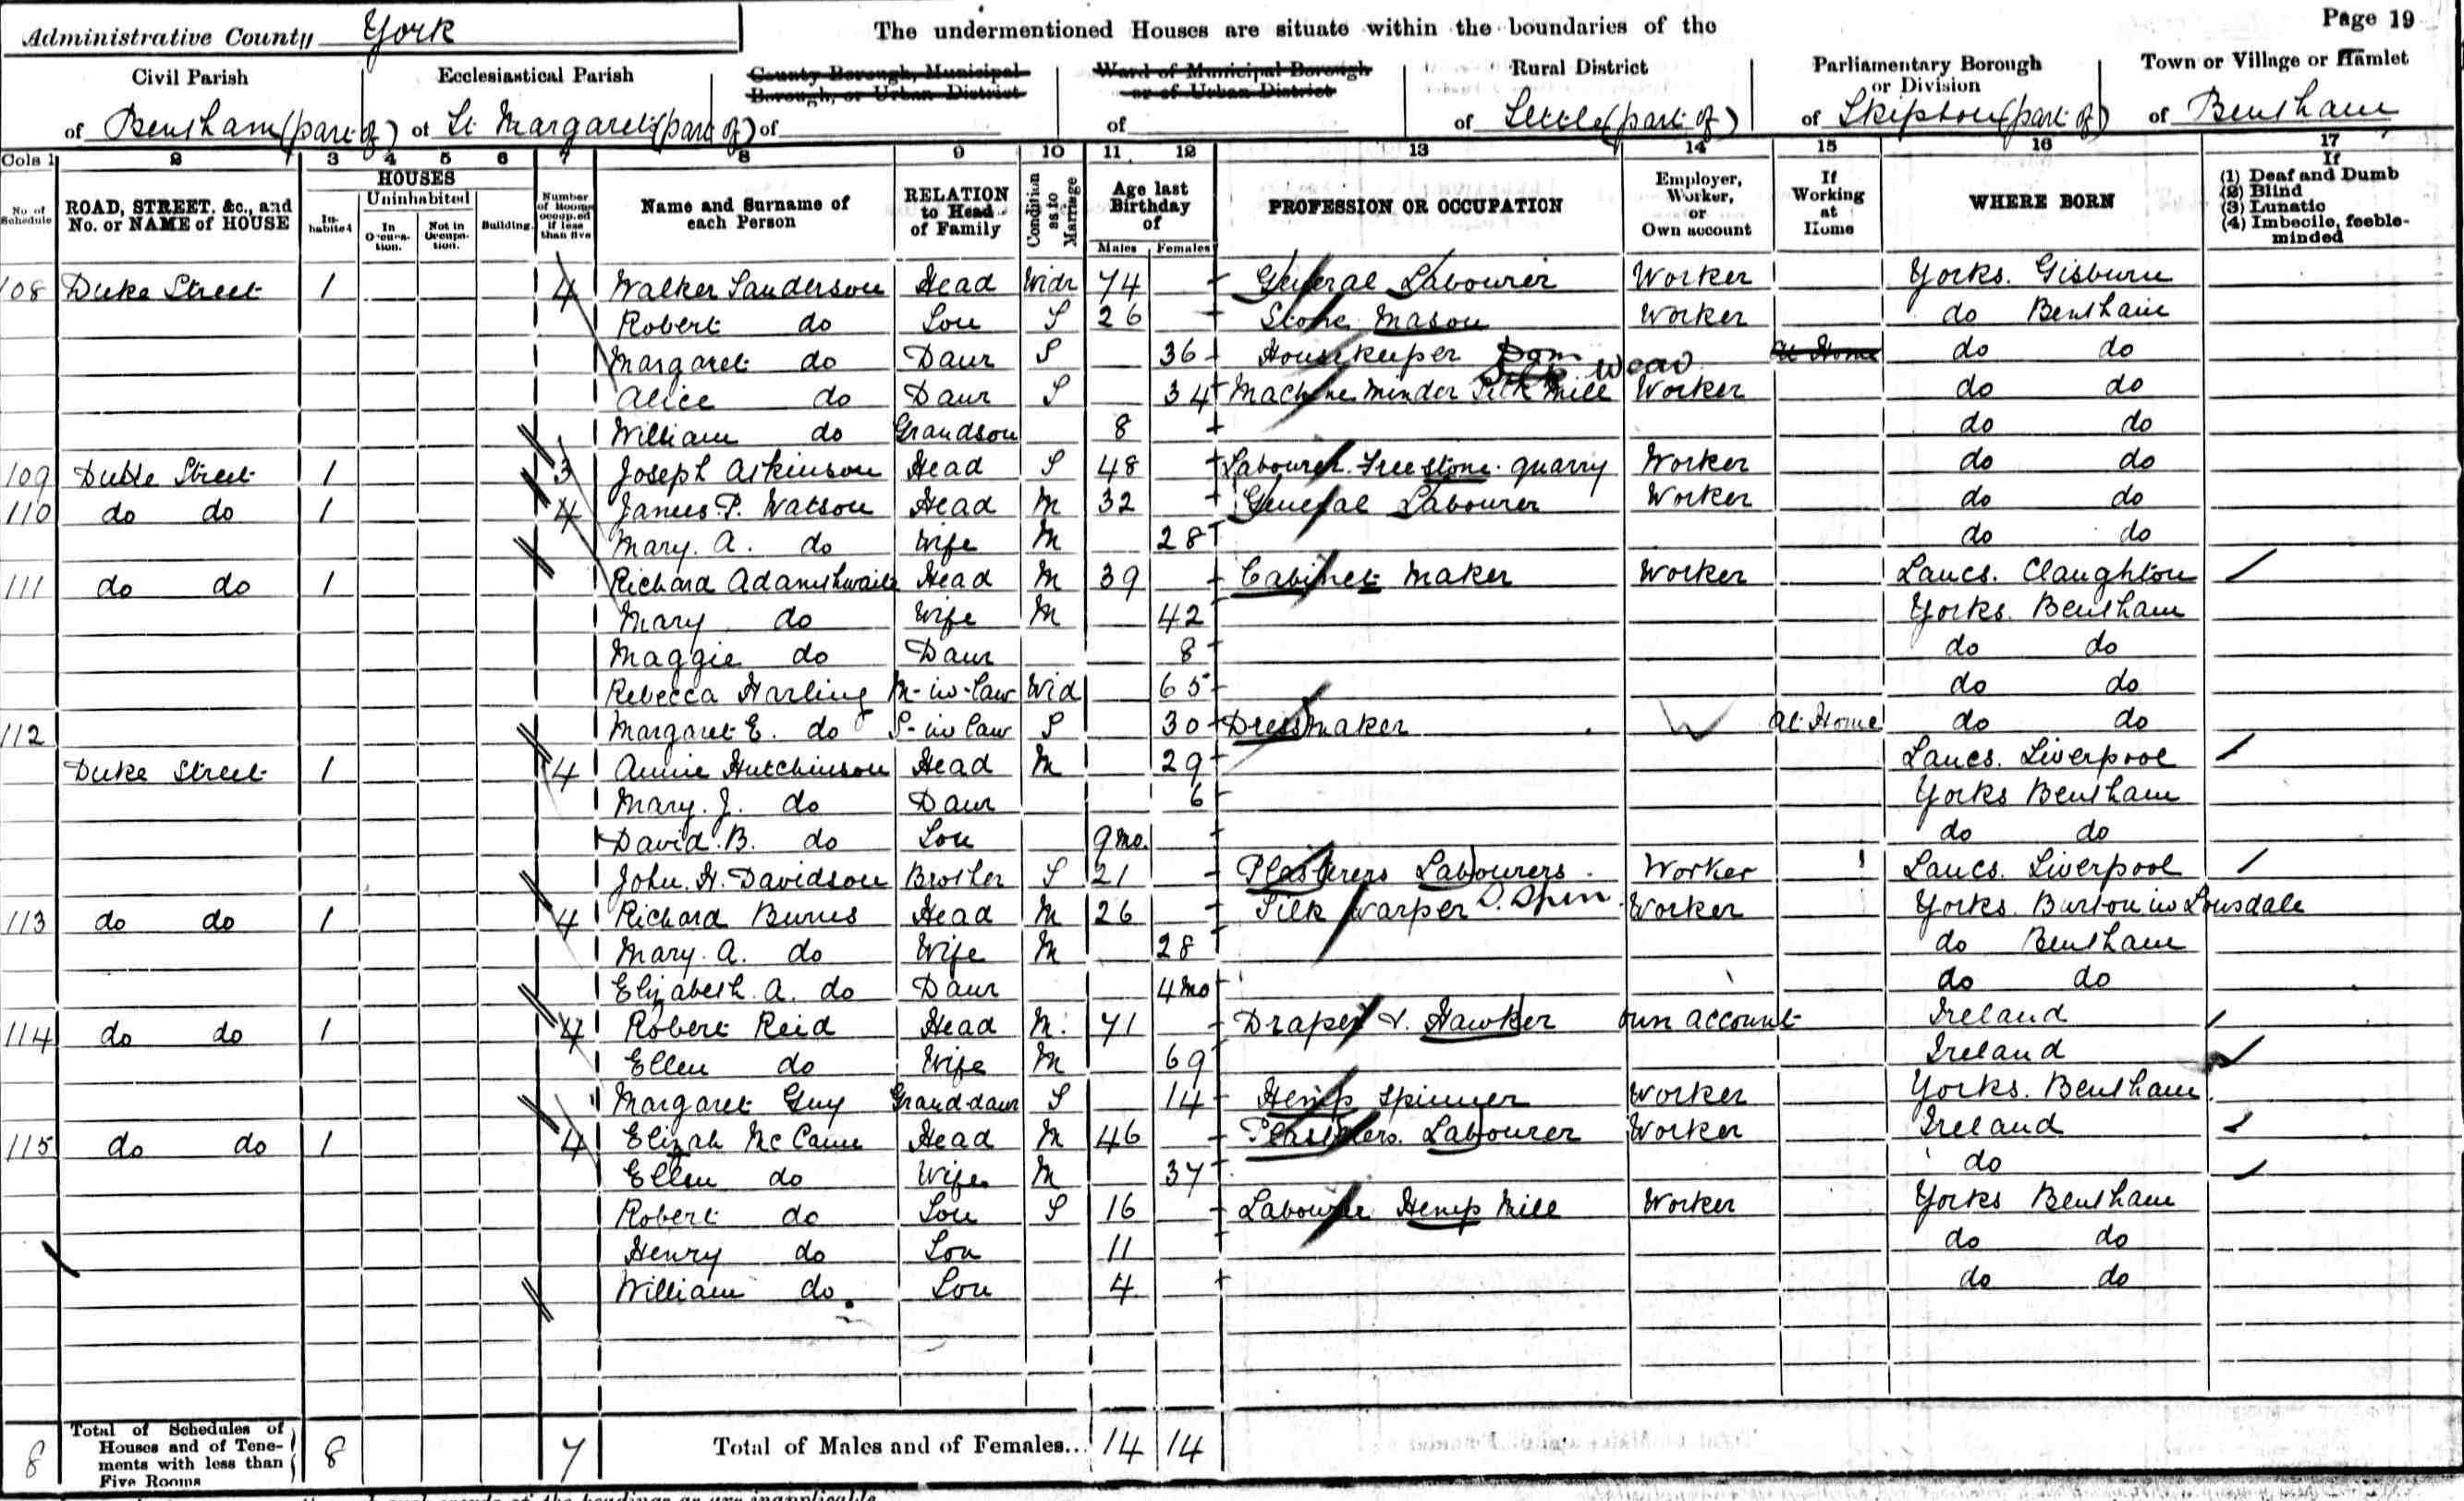 Administrative County York
The undermentioned Houses are situate within the boundaries of the
Page 19
Civil Parish of Bentham (part of)
Ecclesiastical Parish of St Margarets (part of)
County Borough, Municipal Borough, or Urban District of
Ward of Municipal Borough or of Urban District of
Rural District of Settle (part of)
Parliamentary Borough or Division of Skipton (part of)
Town or Village or Hamlet of Bentham
Cols 1 2 3 4 5 6 7 8 9 10 11 12 13 14 15 16 17
No of Schedule
ROAD, STREET, &c., and No. or NAME of HOUSE
HOUSES
Inhabited
Uninhabited
In Occupation.
Not in Occupation.
Building
Number of Rooms occupied if less than five
Name and Surname of each Person
RELATION to Head of Family
Condition as to Marriage
Age last Birthday of
Males Females
PROFESSION OR OCCUPATION
Employer, Worker, or Own account
If Working at Home
WHERE BORN
If
(1) Deaf and Dumb
(2) Blind
(3) Lunatic
(4) Imbecile, feeble-minded
108 Duke Street 1 4 Walker Sanderson Head Widr 74 General Labourer Worker Yorks. Gisburn
Robert do Son S 26 Stone Mason Worker do Bentham
Margaret do Daur S 36 Housekeeper Dom At Home do do
Alice do Daur S 34 Machine Minder Silk Mill Weav Worker do do
William do Grandson 8 do do
109 Duke Street 1 3 Joseph Atkinson Head S 48 Labourer. Freestone. quarry Worker do do
110 do do 1 4 James. P. Watson Head M 32 General Labourer Worker do do
Mary. A. do Wife M 28 do do
111 do do 1 Richard Adamthwaite Head M 39 Cabinet Maker Worker Lancs. Claughton
Mary do Wife M 42 Yorks. Bentham
Maggie do Daur 8 do do
Rebecca Harling M-in-law Wid 65 do do
112 Margaret E. do S-in law S 30 Dressmaker W At Home do do
Duke Street 1 4 Annie Hutchinson Head M 29 Lancs. Liverpool
Mary. J. do Daur 6 Yorks Bentham
David. B. do Son 9mo. do do
John. H. Davidson Brother S 21 Plasterers Labourers Worker Lancs. Liverpool
113 do do 1 4 Richard Burns Head M 26 Silk Warper S. Spin Worker Yorks. Burton in Lonsdale
Mary. A. do Wife M 28 do Bentham
Elizabeth. A. do Daur 4mo do do
114 do do 1 4 Robert Reid Head M. 71 Draper & Hawker Own account Ireland
Ellen do Wife M 69 Ireland
Margaret Guy Grand-daur S 14 Hemp Spinner Worker Yorks. Bentham
115 do do 1 4 Elizah McCann Head M 46 Plasterers Labourer Worker Ireland
Ellen do Wife M 37 do
Robert do Son S 16 Labourer Hemp Mill Worker Yorks Bentham
Henry do Son 11 do do
William do Son 4 do do
8 Total of Schedules of Houses and of Tenements with less than Five Rooms 8 7 Total of Males and of Females... 14 14